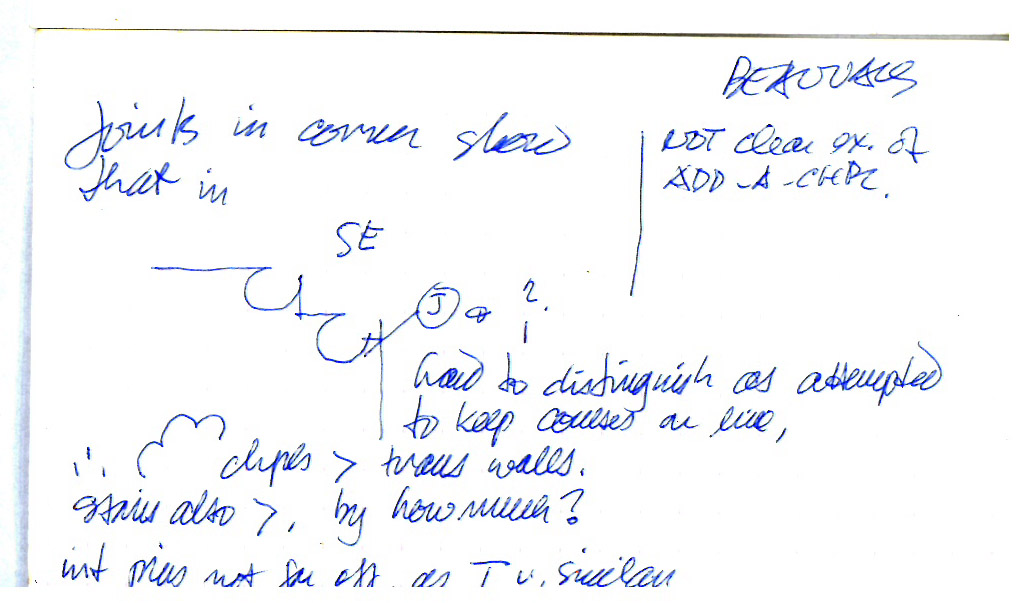 BEAUVAIS
Joints in corner show
that in
NOT clear ex. of
ADD-A-CHPL.
SE
J ?
hard to distinguish as attempted
to keep courses on line,
chpls > trans walls.
stairs also >, by how much?
int not far off, as T v. similar